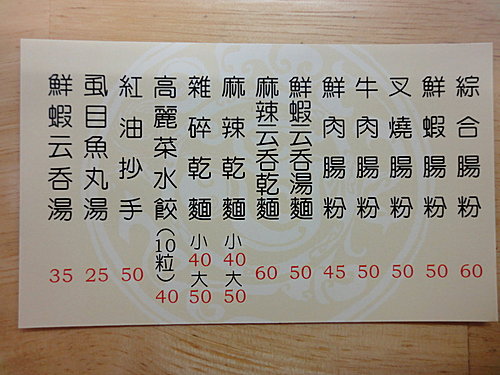 綜合腸粉 60
鮮蝦腸粉 50
叉燒腸粉 50
牛肉腸粉 50
鮮肉腸粉 45
鮮蝦云吞湯麵 50
麻辣云吞乾麵 60
麻辣乾麵 小40大50
雜碎乾麵 小40大50
高麗菜水餃(10粒) 40
紅油抄手 50
虱目魚丸湯 25
鮮蝦云吞湯 35